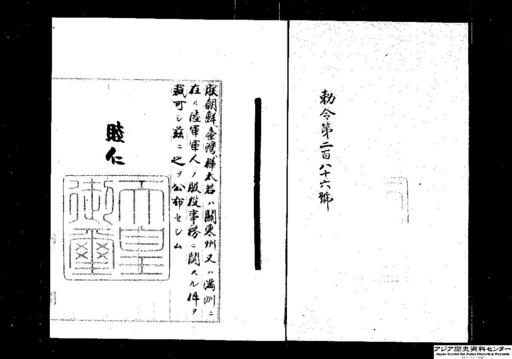 勅令第二百八十六號
朕朝鮮臺灣樺太若ハ關東州又ハ滿洲ニ
在ル陸軍軍人ノ服役事務ニ關スル件ヲ
裁可シ茲ニ之ヲ公布セシム
睦仁
天皇
御璽
アジア歴史資料センター
Japan Center for Asian Historical Records